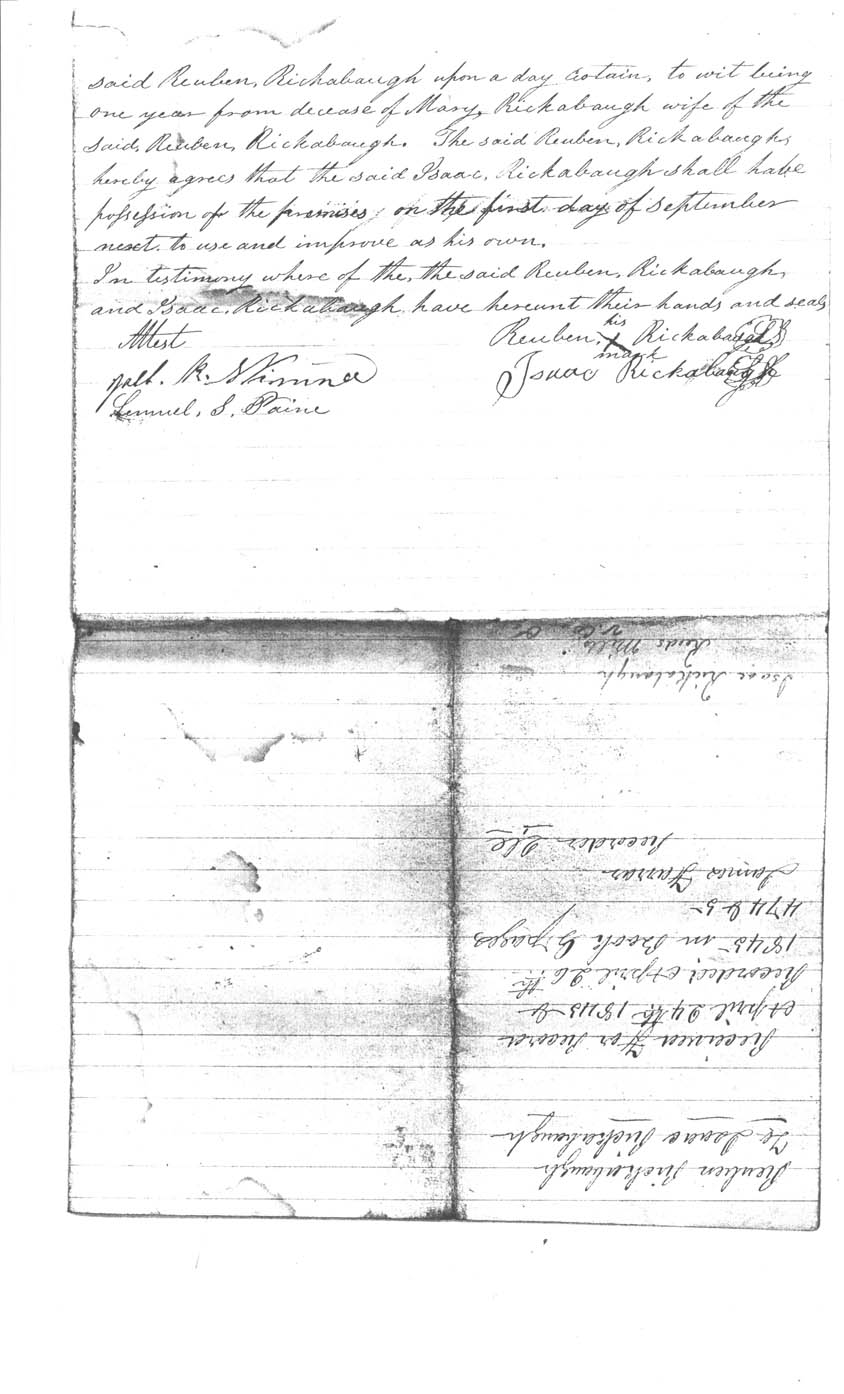 said Reuben, Rickabaugh upon a day certain, to wit being
one year from decease of Mary, Rickabaugh wife of the
said, Reuben, Rickabaugh. The said Reuben, Rickabaugh,
hereby agrees that the said Isaac, Rickabaugh shall have
possession of the premises, on the first day of september
next. to use and improve as his own.
In testimony where of the, the said Reuben, Rickabaugh,
and Isaac, Rickabaugh have hereunt their hands and seals
Attest
Reuben, his X mark Rickabaugh
R. Skinner
Isaac Rickabaugh
Lemuel, S, Paine
Reuben Rickabaugh
To Isaac Rickabaugh
Received For Record
April 24th 1845 &
Recorded April 26th
1845 in Book G pages
474 & 5
James Farrar
Recorder
Isaac Rickabaugh
Reids Mills